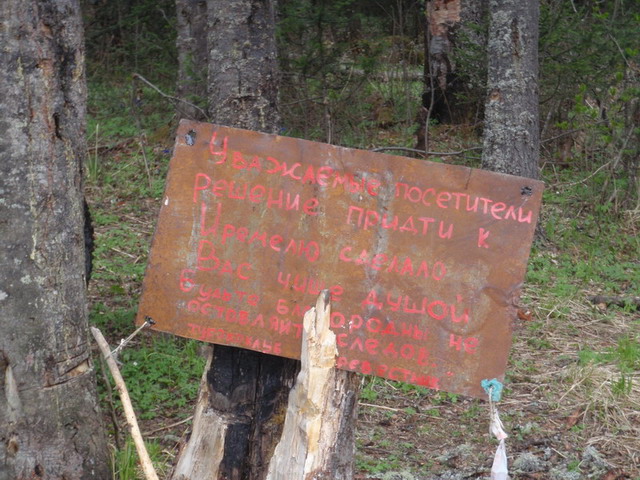 Уважаемые посетители
Решение придти к
Иремелю сделало
Вас чище душой
Будьте благородны не
оставляйте следов.